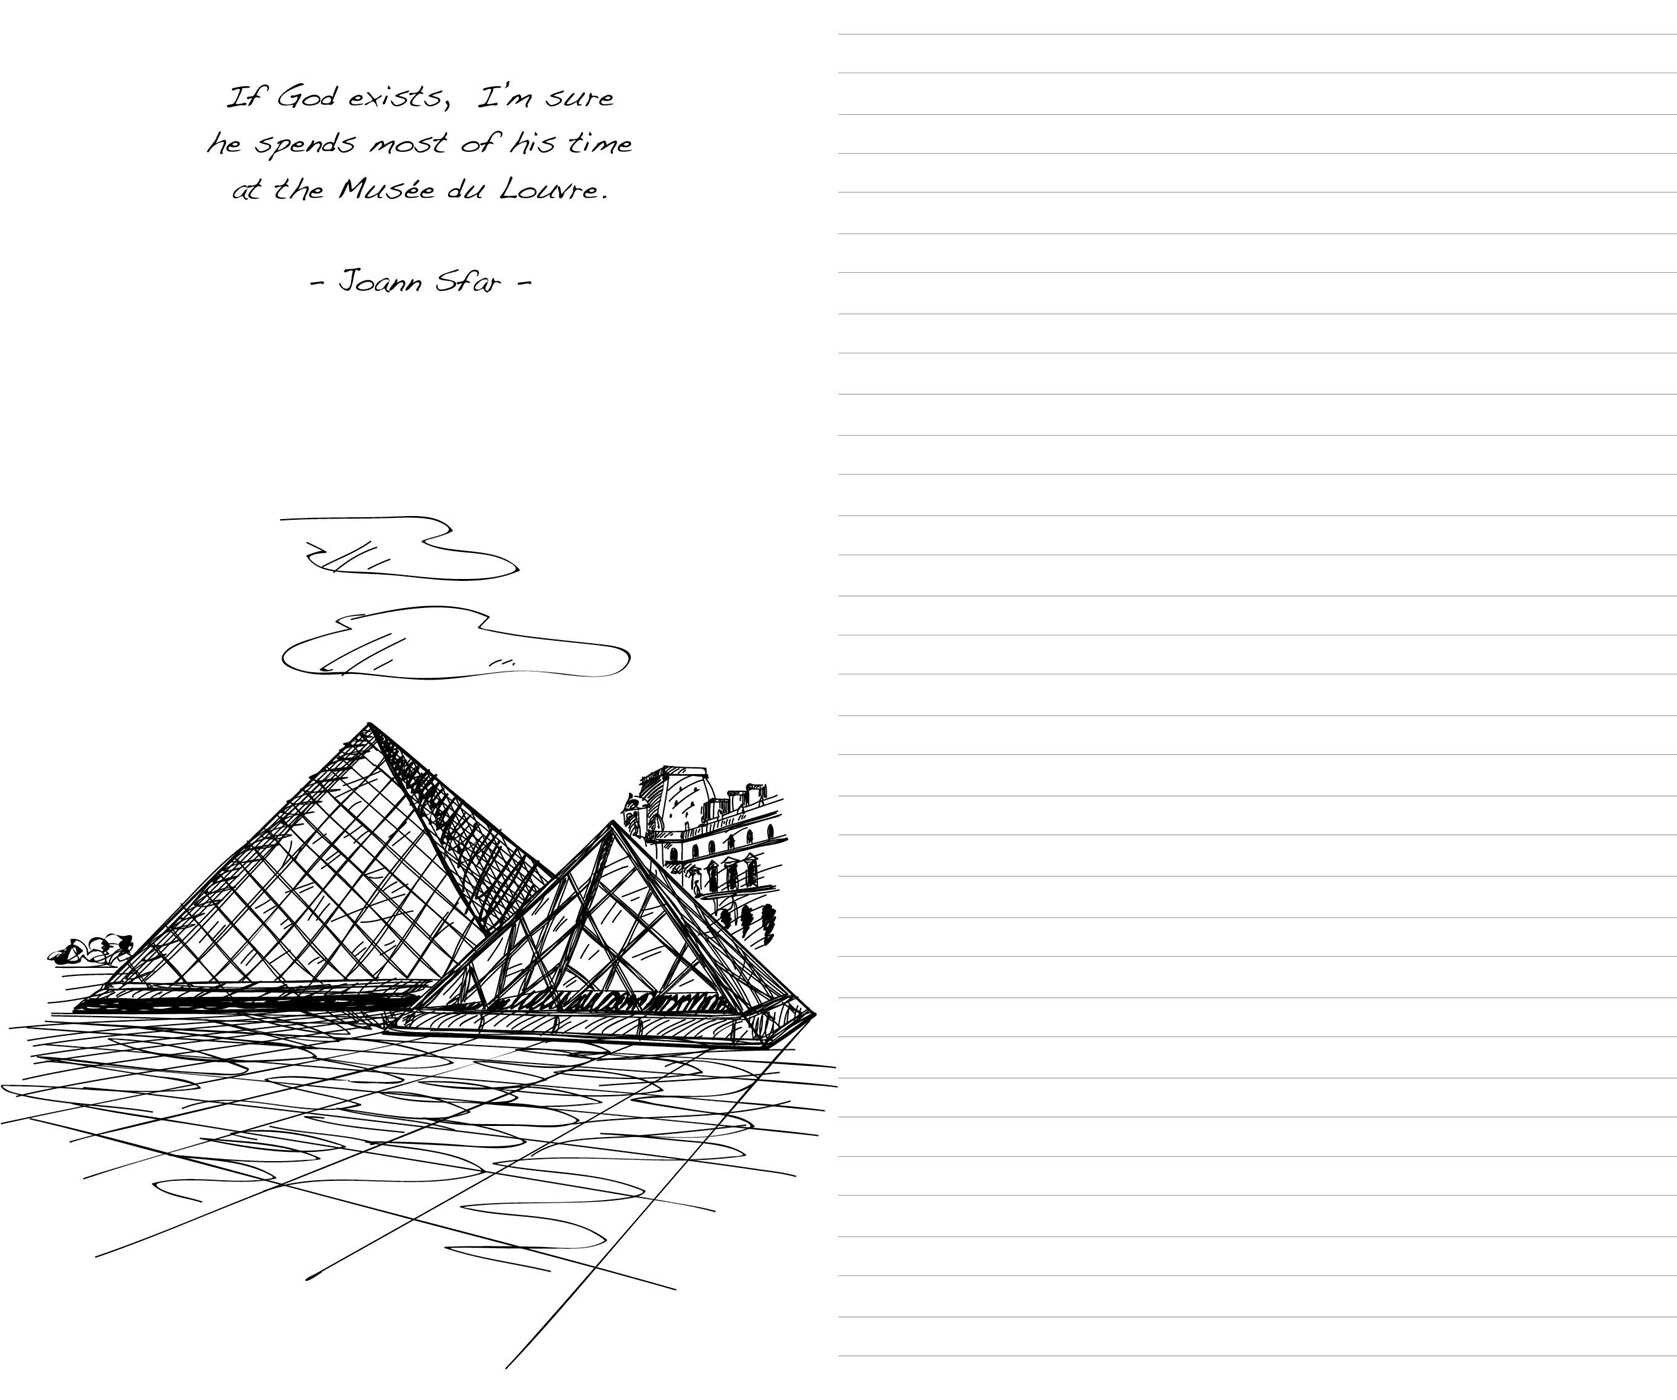 If God exists, I'm sure
he spends most of his time
at the Musée du Louvre.
- Joann Sfar -